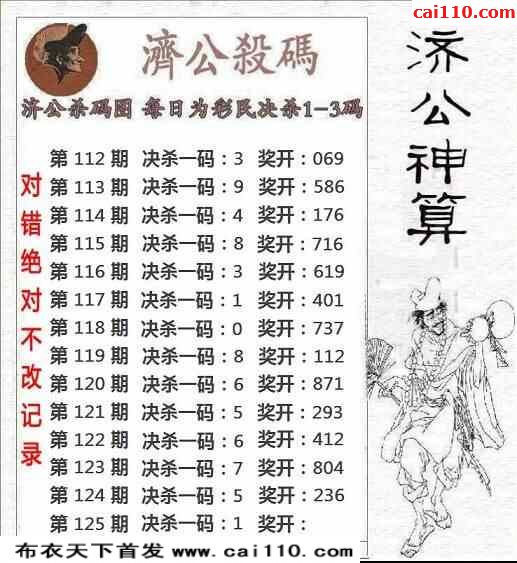 cai110.com
濟公殺碼
济公杀码图 每日为彩民决杀1-3码
济公神算
对错绝对不改记录
第112期 决杀一码:3 奖开:069
第113期 决杀一码:9 奖开:586
第114期 决杀一码:4 奖开:176
第115期 决杀一码:8 奖开:716
第116期 决杀一码:3 奖开:619
第117期 决杀一码:1 奖开:401
第118期 决杀一码:0 奖开:737
第119期 决杀一码:8 奖开:112
第120期 决杀一码:6 奖开:871
第121期 决杀一码:5 奖开:293
第122期 决杀一码:6 奖开:412
第123期 决杀一码:7 奖开:804
第124期 决杀一码:5 奖开:236
第125期 决杀一码:1 奖开:
布衣天下首发 www.cai110.com